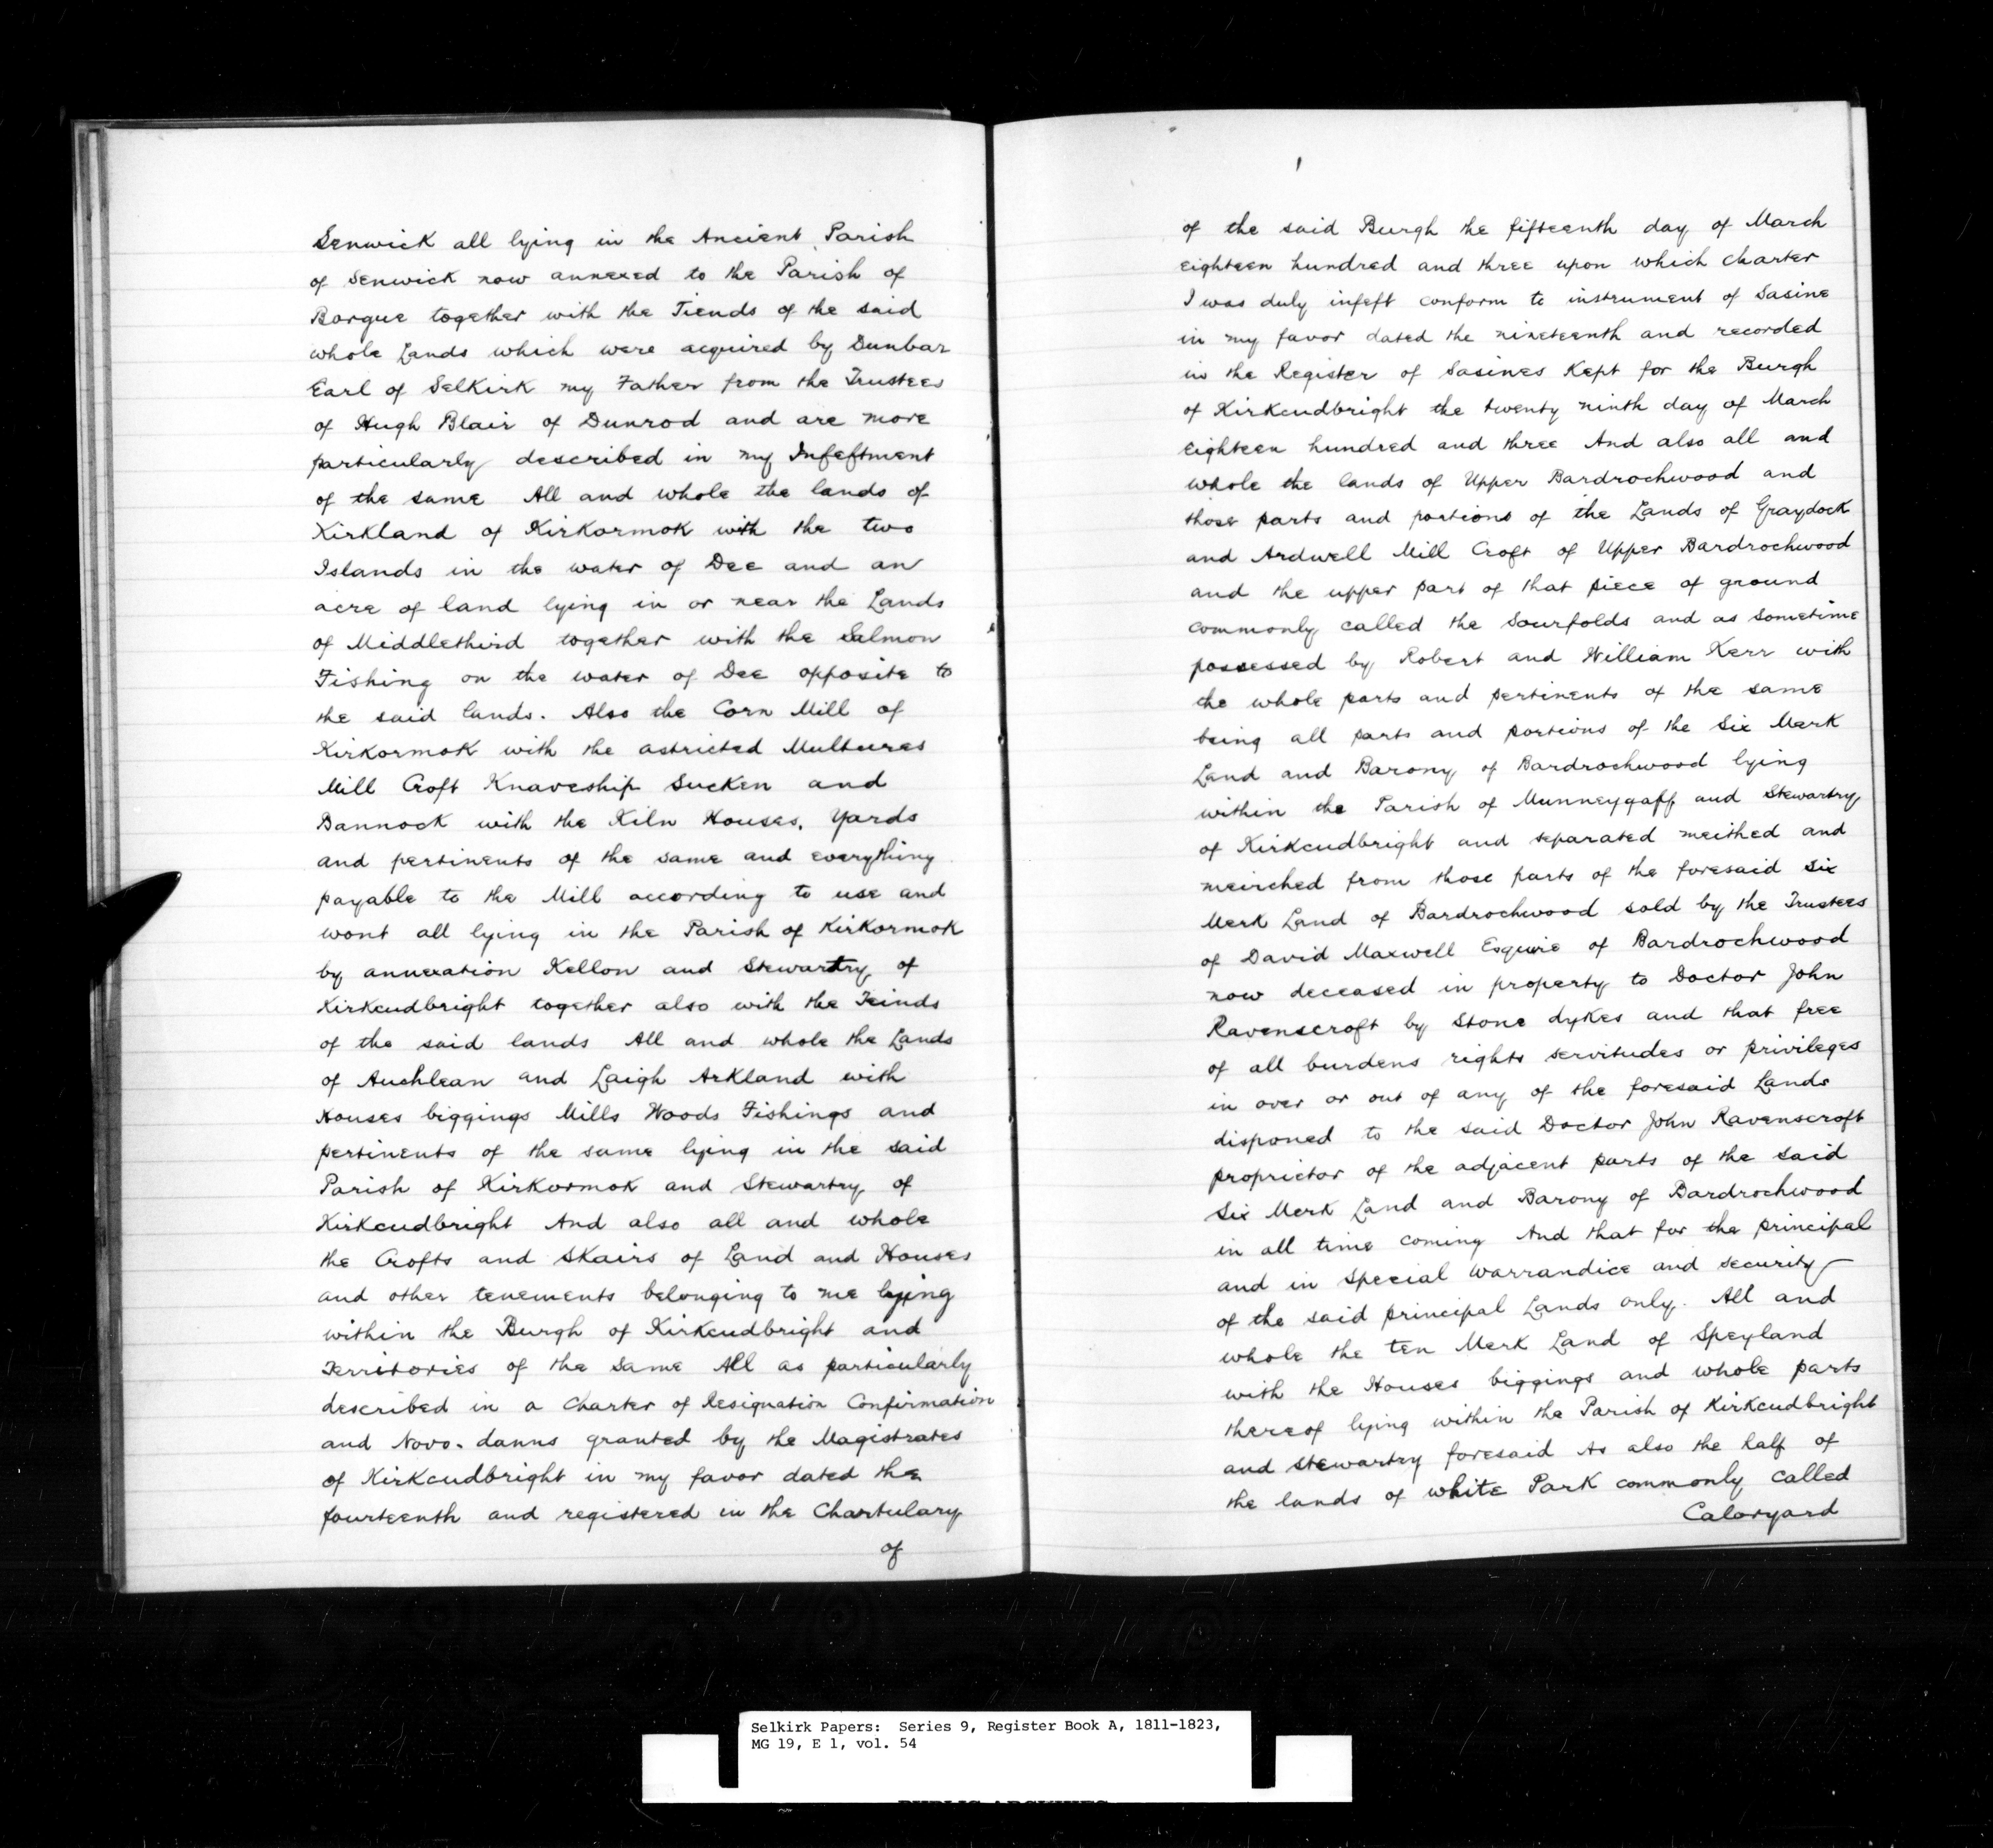 Senwick all lying in the Ancient Parish
of Senwick now annexed to the Parish of
Borgue together with the Tiends of the said
whole Lands which were acquired by Dunbar
Earl of Selkirk my Father from the Trustees
of Hugh Blair of Dunrod and are more
particularly described in my Infeftment
of the same All and whole the lands of
Kirkland of Kirkormok with the two
Islands in the water of Dee and an
acre of land lying in or near the Lands
of Middlethird together with the Salmon
Fishing on the water of Dee opposite to
the said lands. Also the Corn Mill of
Kirkormok with the astricted Multures
Mill Croft Knaveship Sucken and
Bannock with the Kiln Houses, Yards
and pertinents of the same and everything
payable to the Mill according to use and
wont all lying in the Parish of Kirkormok
by annexation Kellon and Stewartry of
Kirkcudbright together also with the Teinds
of the said lands All and whole the Lands
of Auchlean and Laigh Arkland with
Houses biggings Mills Woods Fishings and
pertinents of the same lying in the said
Parish of Kirkormok and Stewartry of
Kirkcudbright And also all and whole
the Crofts and Skairs of Land and Houses
and other tenements belonging to me lying
within the Burgh of Kirkcudbright and
Territories of the same All as particularly
described in a Charter of Resignation Confirmation
and Novo-damus granted by the Magistrates
of Kirkcudbright in my favor dated the
fourteenth and registered in the Chartulary
of
of the said Burgh the fifteenth day of March
eighteen hundred and three upon which charter
I was duly infeft conform to instrument of Sasine
in my favor dated the nineteenth and recorded
in the Register of Sasines Kept for the Burgh
of Kirkcudbright the twenty ninth day of March
eighteen hundred and three And also all and
whole the lands of Upper Bardrochwood and
those parts and portions of the Lands of Graydock
and Ardwell Mill Croft of Upper Bardrochwood
and the upper part of that piece of ground
commonly called the Sourfolds and as sometime
possessed by Robert and William Kerr with
the whole parts and pertinents of the same
being all parts and portions of the Six Merk
Land and Barony of Bardrochwood lying
within the Parish of Munneygaff and Stewartry
of Kirkcudbright and separated meithed and
meirched from those parts of the foresaid Six
Merk Land of Bardrochwood sold by the Trustees
of David Maxwell Esquire of Bardrochwood
now deceased in property to Doctor John
Ravenscroft by Stone dykes and that free
of all burdens rights servitudes or privileges
in over or out of any of the foresaid Lands
disponed to the said Doctor John Ravenscroft
proprietor of the adjacent parts of the said
Six Merk Land and Barony of Bardrochwood
in all time coming And that for the principal
and in Special Warrandice and security
of the said principal Lands only. All and
whole the ten Merk Land of Speyland
with the Houses biggings and whole parts
thereof lying within the Parish of Kirkcudbright
and Stewartry foresaid As also the half of
the lands of white Park commonly called
Caloryard
Selkirk Papers: Series 9, Register Book A, 1811-1823,
MG 19, E 1, vol. 54